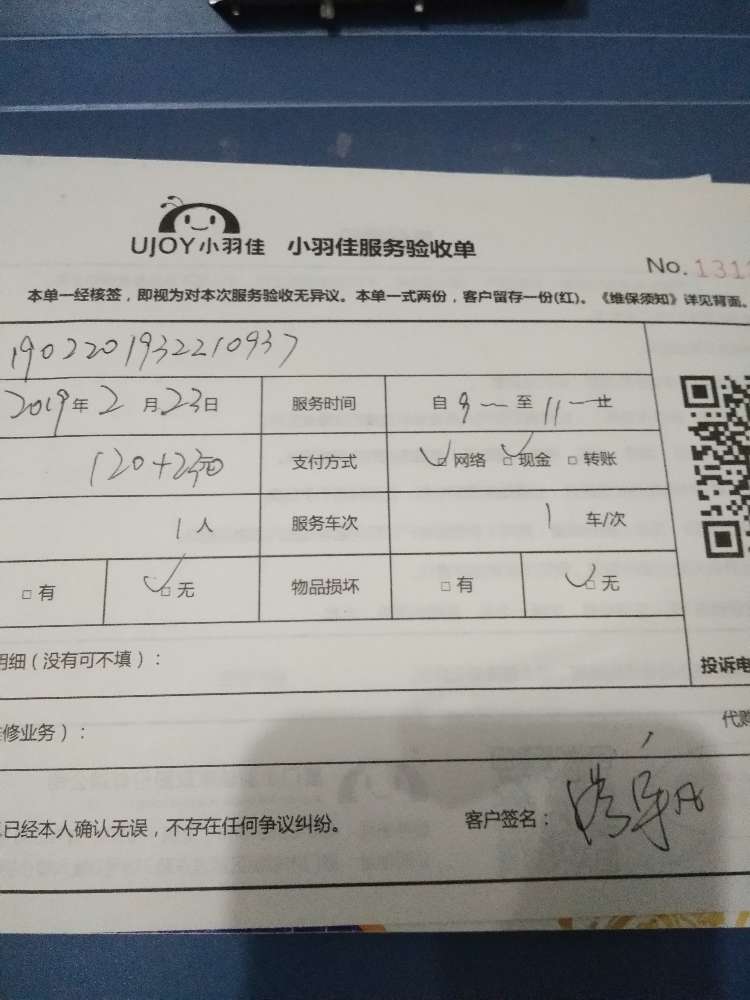 UJOY小羽佳 小羽佳服务验收单
No.131
本单一经核签，即视为对本次服务验收无异议。本单一式两份，客户留存一份(红)。《维保须知》详见背面。
1902201932210937
2019年2月23日 服务时间 自9一至11一止
120+23元 支付方式 网络 现金 转账
1人 服务车次 1车/次
有 无 物品损坏 有 无
明细（没有可不填）：
投诉电
修业务）：
代购
已经本人确认无误，不存在任何争议纠纷。 客户签名：